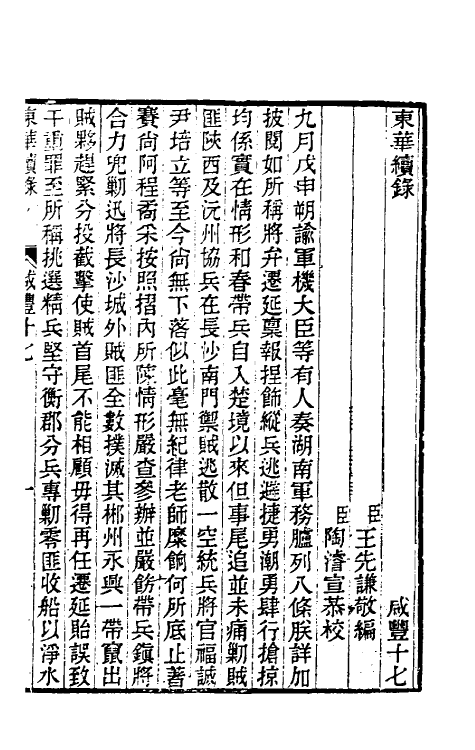 東華續錄 咸豐十七
臣王先謙敬編
臣陶濬宣恭校
九月戊申朔諭軍機大臣等有人奏湖南軍務臚列八條朕詳加
披閱如所稱將弁遷延稟報捏飾縱兵逃避捷勇潮勇肆行搶掠
均係實在情形和春帶兵自入楚境以來但事尾追並未痛勦賊
匪陝西及沅州協兵在長沙南門禦賊逃散一空統兵將官福誠
尹培立等至今尙無下落似此毫無紀律老師糜餉何所底止著
賽尙阿程矞采按照摺內所陳情形嚴查參辦並嚴飭帶兵鎭將
合力兜勦迅將長沙城外賊匪全數撲滅其郴州永興一帶竄出
賊夥趕緊分投截擊使賊首尾不能相顧毋得再任遷延貽誤致
干重罪至所稱挑選精兵堅守衡郡分兵專勦零匪收船以淨水
東華續錄 咸豐十七 一